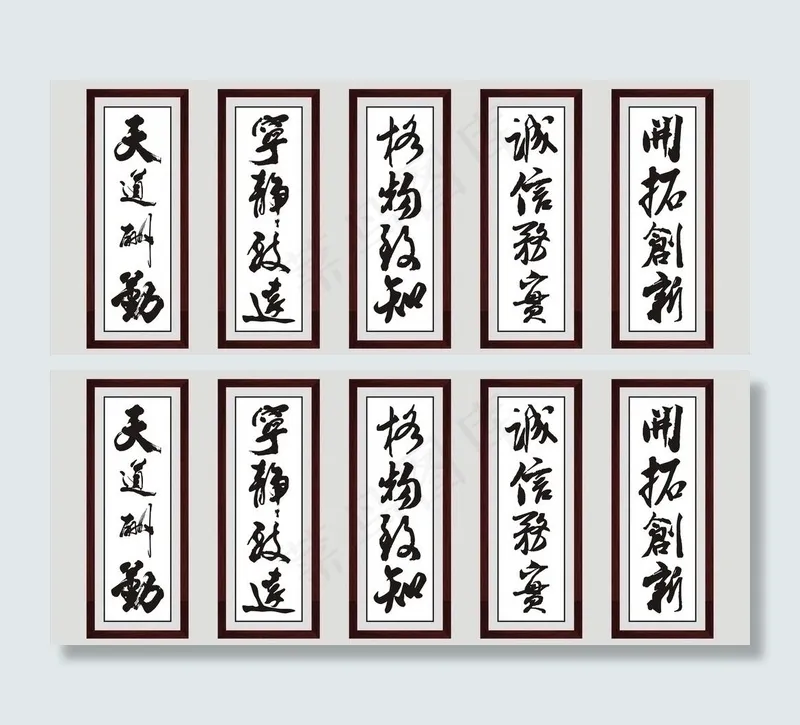 天道酬勤
寧靜致遠
格物致知
誠信務實
開拓創新
天道酬勤
寧靜致遠
格物致知
誠信務實
開拓創新